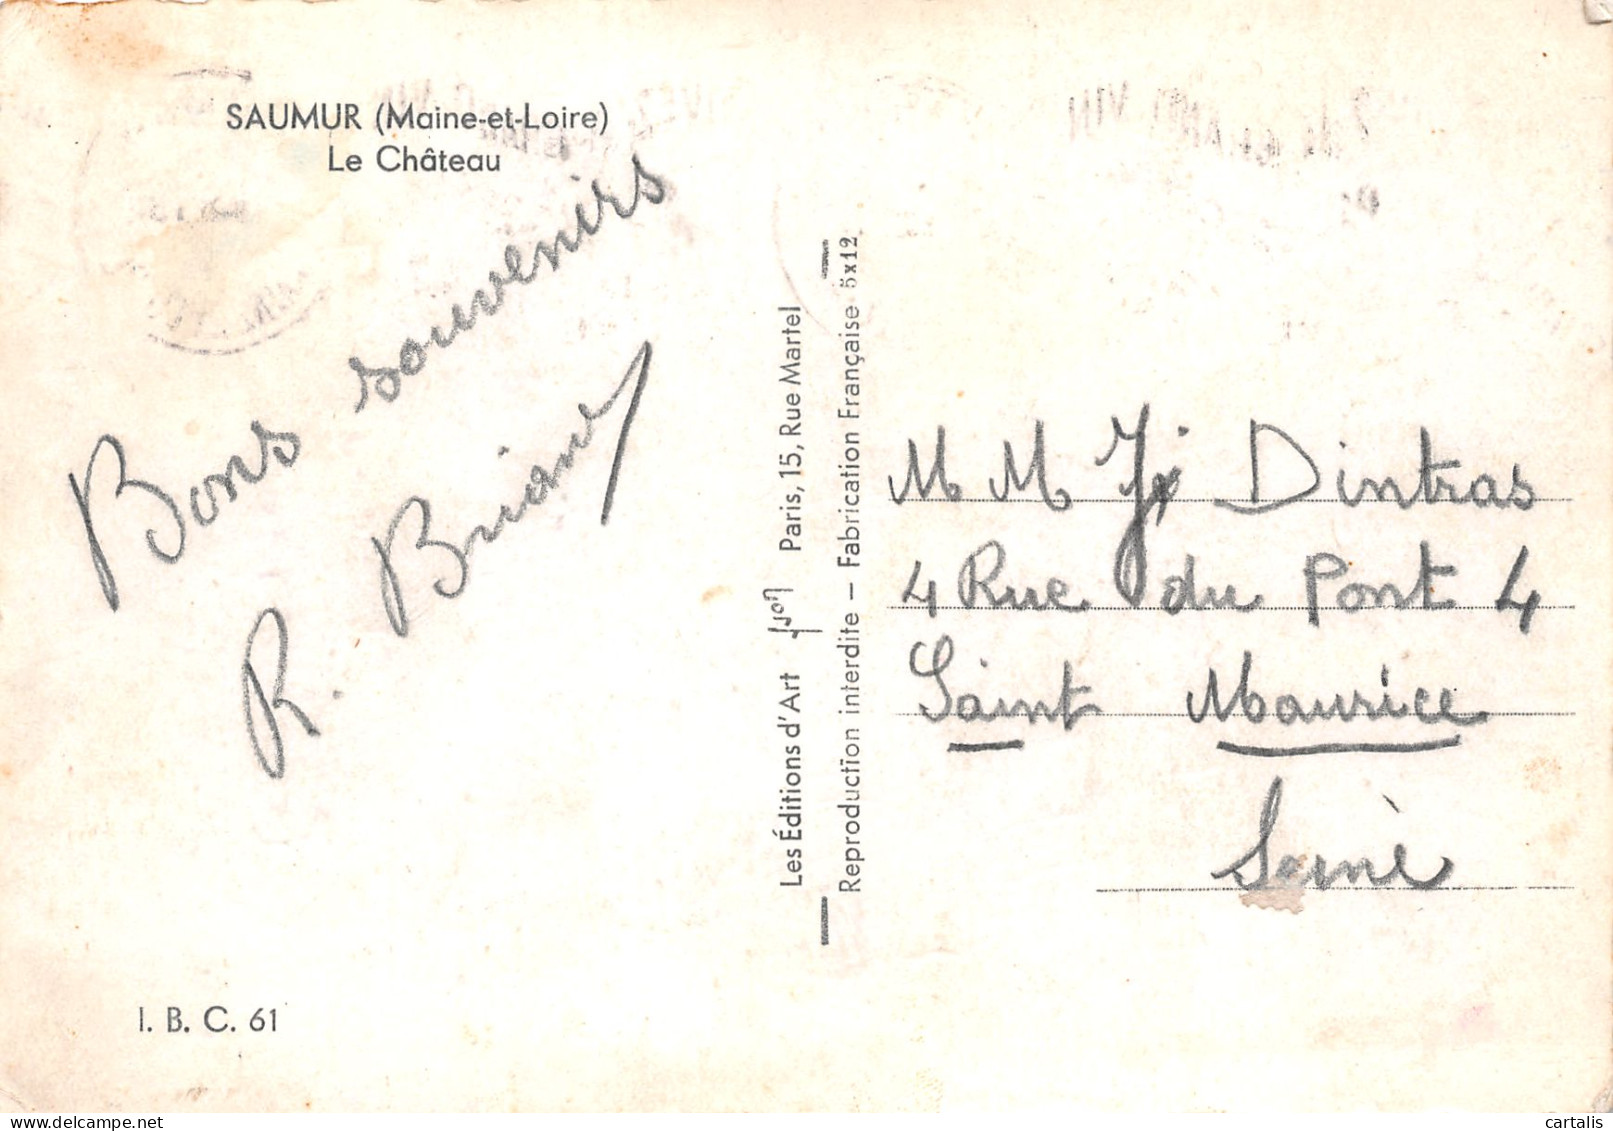 SAUMUR (Maine-et-Loire)
Le Château
Bons souvenirs
R. Briand
I. B. C. 61
Les Éditions d'Art Yvon Paris, 15, Rue Martel
Reproduction interdite — Fabrication Française 5x12
M M Dintras
4 Rue du Pont 4
Saint Maurice
Seine
cartalis